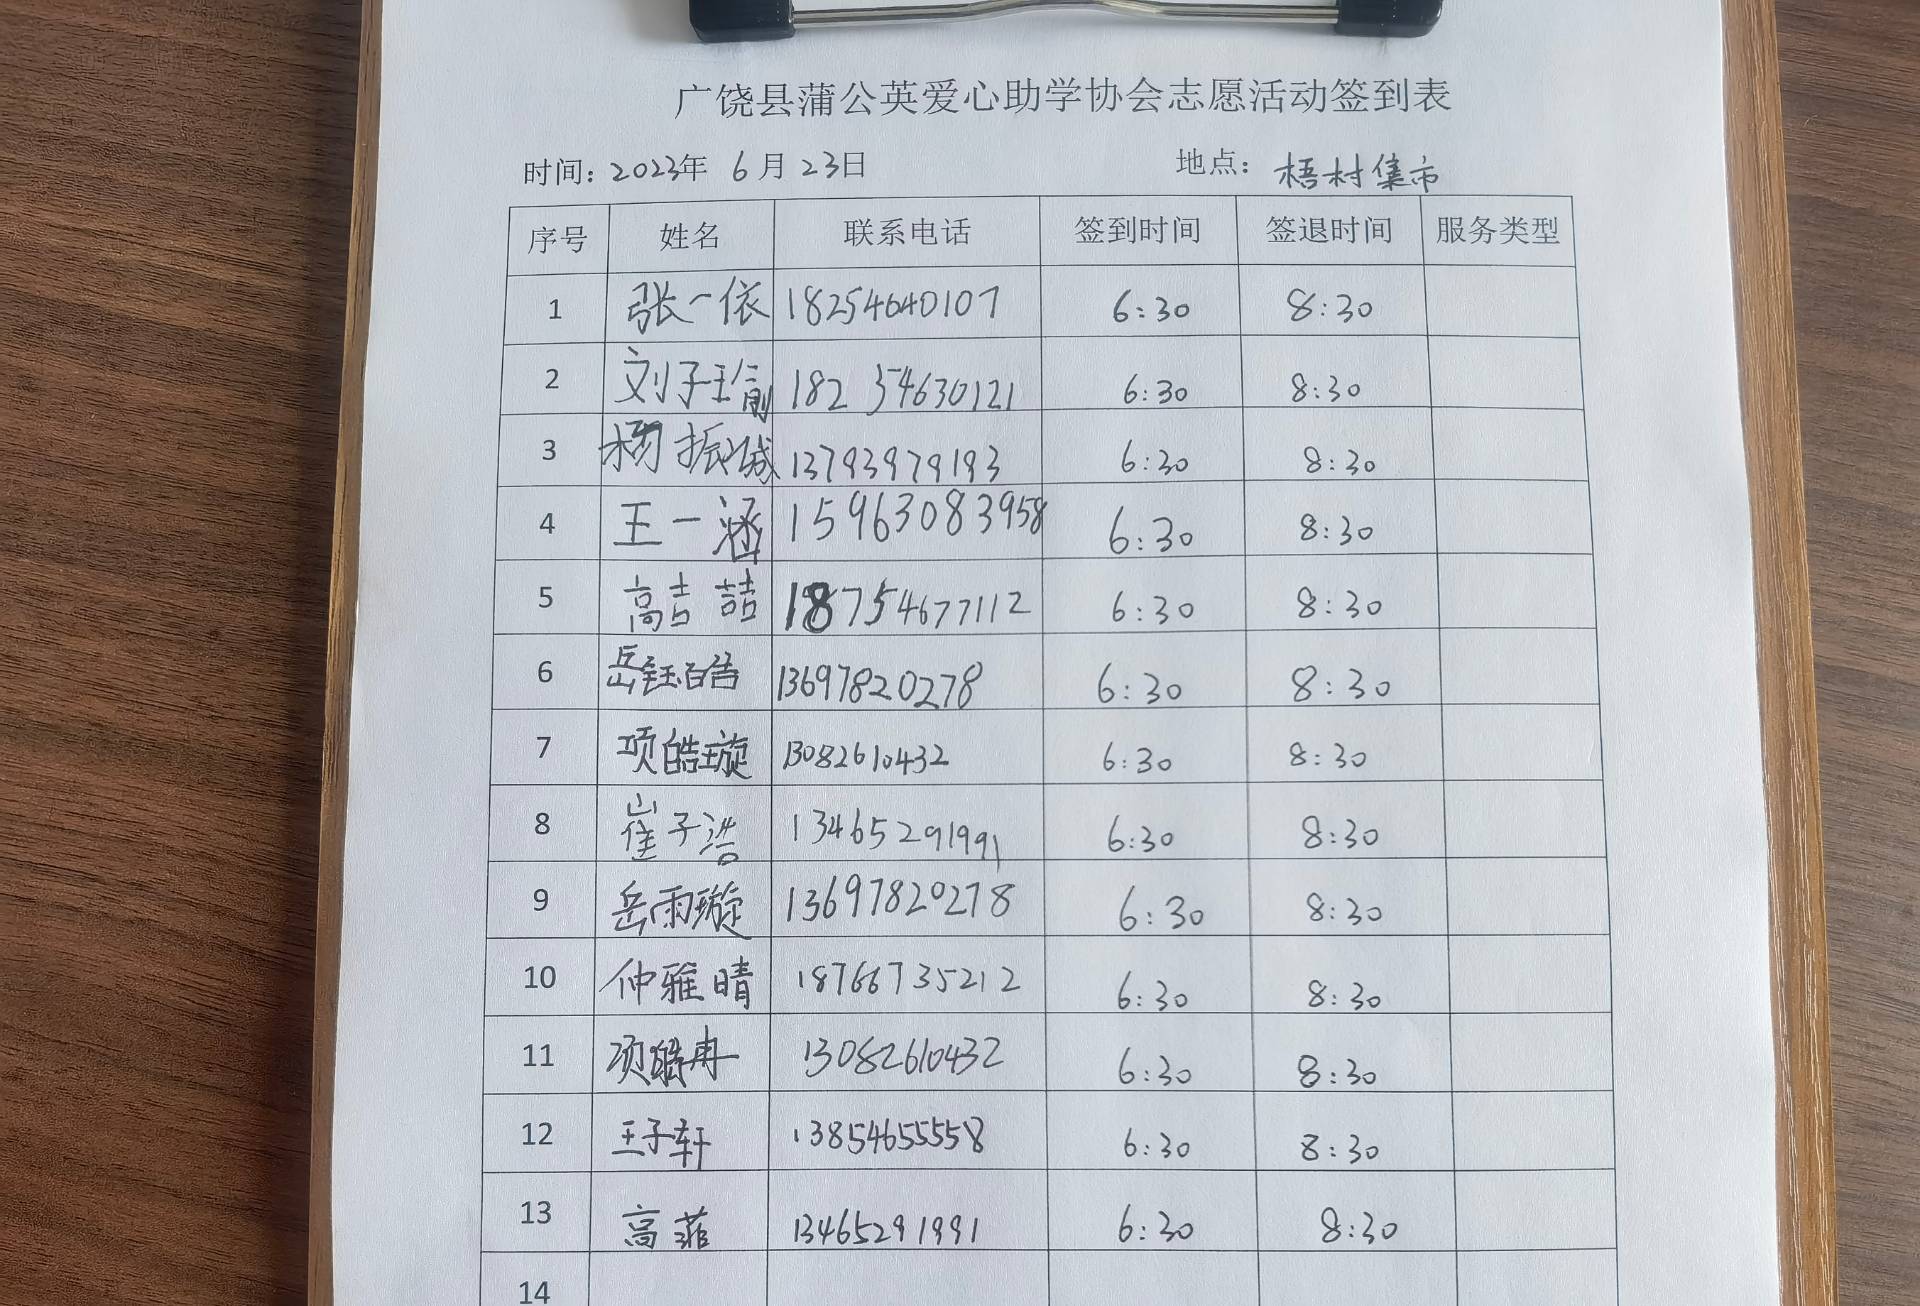 广饶县蒲公英爱心助学协会志愿活动签到表
时间：2023年 6月 23日 地点：梧村集市
序号 姓名 联系电话 签到时间 签退时间 服务类型
1 张一依 18254640107 6:30 8:30
2 刘子 18254630121 6:30 8:30
3 杨振城 13793979193 6:30 8:30
4 王一涵 15963083958 6:30 8:30
5 高喆 18754677112 6:30 8:30
6 岳钰皓 13697820278 6:30 8:30
7 项皓璇 13082610432 6:30 8:30
8 崔子浩 13465291991 6:30 8:30
9 岳雨璇 13697820278 6:30 8:30
10 仲雅晴 18766735212 6:30 8:30
11 项皓冉 13082610432 6:30 8:30
12 王子轩 13854655558 6:30 8:30
13 高菲 13465291991 6:30 8:30
14